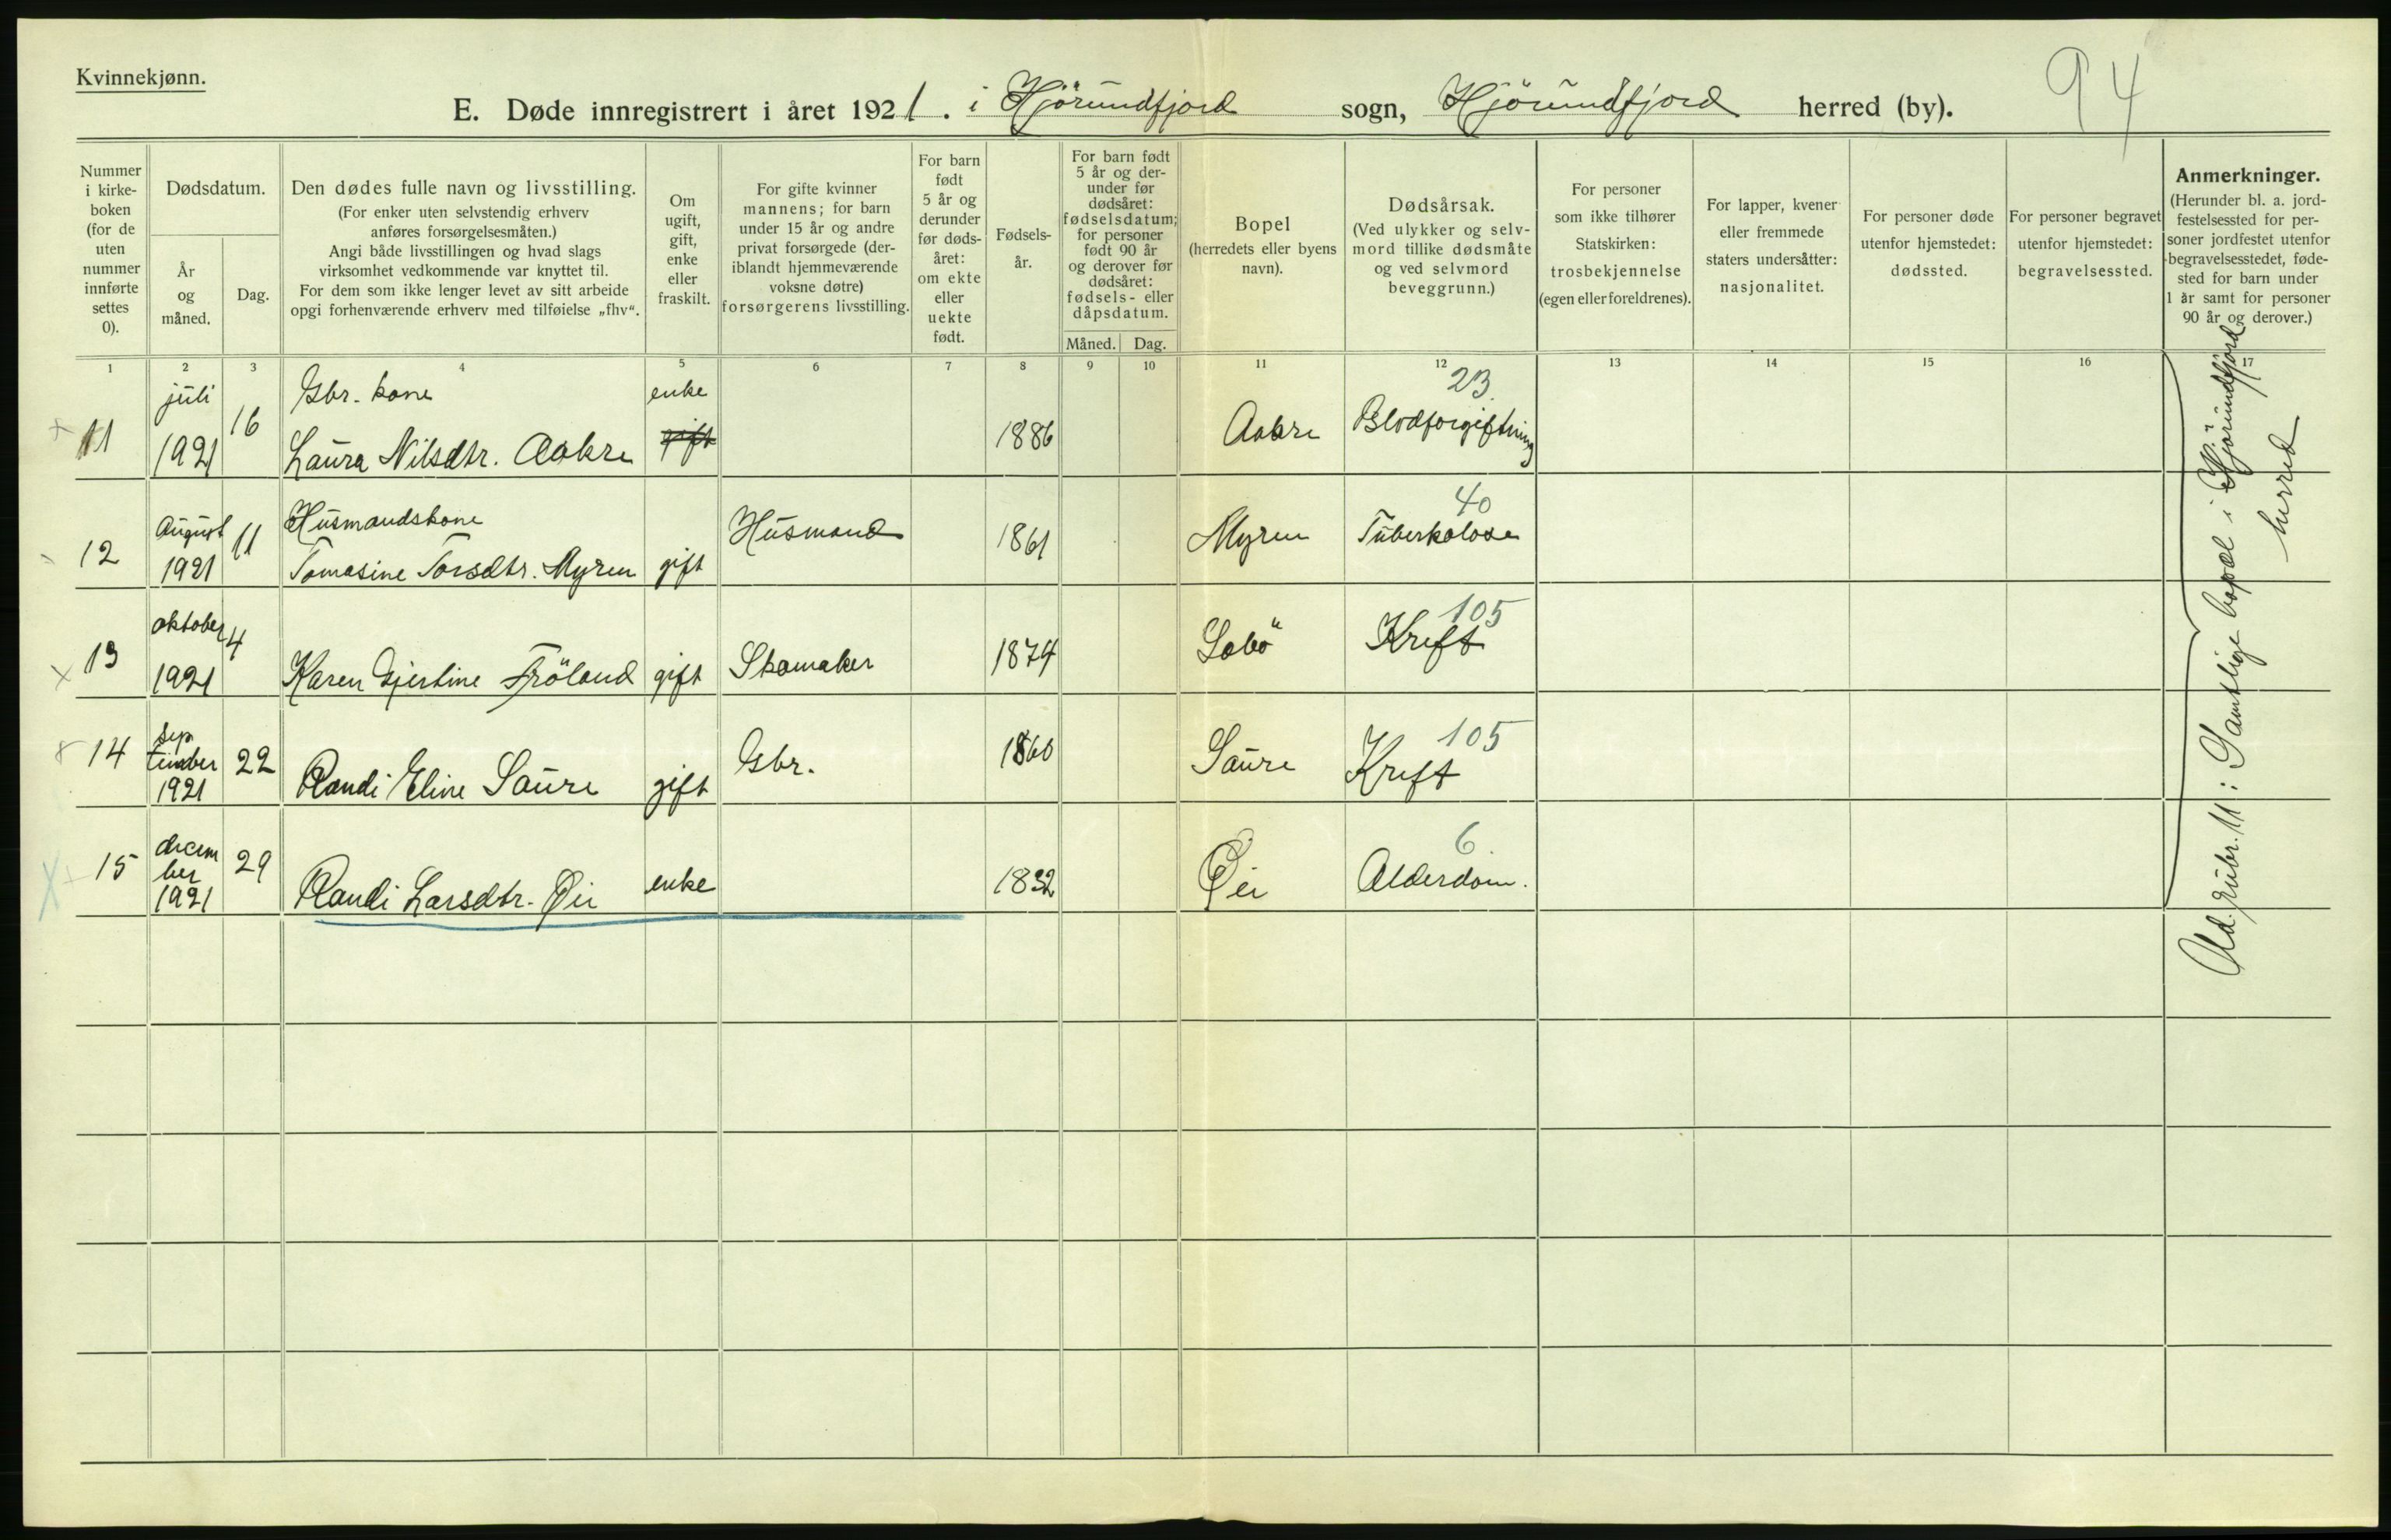 Kvinnekjønn.
E. Døde innregistrert i året 1921. i Hjörundfjord sogn, Hjörundfjord herred (by).
94
Nummer
i kirke-
boken
(for de
uten
nummer
innførte
settes
0).
Dødsdatum.
År
og
måned.
Dag.
Den dødes fulle navn og livsstilling.
(For enker uten selvstendig erhverv
anføres forsørgelsesmåten.)
Angi både livsstillingen og hvad slags
virksomhet vedkommende var knyttet til.
For dem som ikke lenger levet av sitt arbeide
opgi forhenværende erhverv med tilføielse „fhv“.
Om
ugift,
gift,
enke
eller
fraskilt.
For gifte kvinner
mannens; for barn
under 15 år og andre
privat forsørgede (der-
iblandt hjemmeværende
voksne døtre)
forsørgerens livsstilling.
For barn
født
5 år og
derunder
før døds-
året:
om ekte
eller
uekte
født.
Fødsels-
år.
For barn født
5 år og der-
under før
dødsåret:
fødselsdatum;
for personer
født 90 år
og derover før
dødsåret:
fødsels- eller
dåpsdatum.
Måned. Dag.
Bopel
(herredets eller byens
navn).
Dødsårsak.
(Ved ulykker og selv-
mord tillike dødsmåte
og ved selvmord
beveggrunn.)
For personer
som ikke tilhører
Statskirken:
trosbekjennelse
(egen eller foreldrenes).
For lapper, kvener
eller fremmede
staters undersåtter:
nasjonalitet.
For personer døde
utenfor hjemstedet:
dødssted.
For personer begravet
utenfor hjemstedet:
begravelsessted.
Anmerkninger.
(Herunder bl. a. jord-
festelsessted for per-
soner jordfestet utenfor
begravelsesstedet, føde-
sted for barn under
1 år samt for personer
90 år og derover.)
1 2 3 4 5 6 7 8 9 10 11 12 13 14 15 16 17
juli Gbr. kone enke 23
11 1921 16 Laura Nilsdtr. Aakre gift 1886 Aakre Blodforgiftning
August Husmandskone 40
12 1921 11 Tomasine Torsdtr. Myren gift Husmand 1861 Myren Tuberkolose
oktober 105
13 1921 4 Karen Gjertine Fröland gift Skomaker 1874 Sæbö Kreft
sep 105
14 tember 22 Randi Eline Saure gift Gbr. 1860 Saure Kreft
1921
decem 6
15 ber 29 Randi Larsdtr. Øie enke 1832 Øie Alderdom.
1921
Ad. rubr. 11: Samtlige bopæl i Hjörundfjord
herred